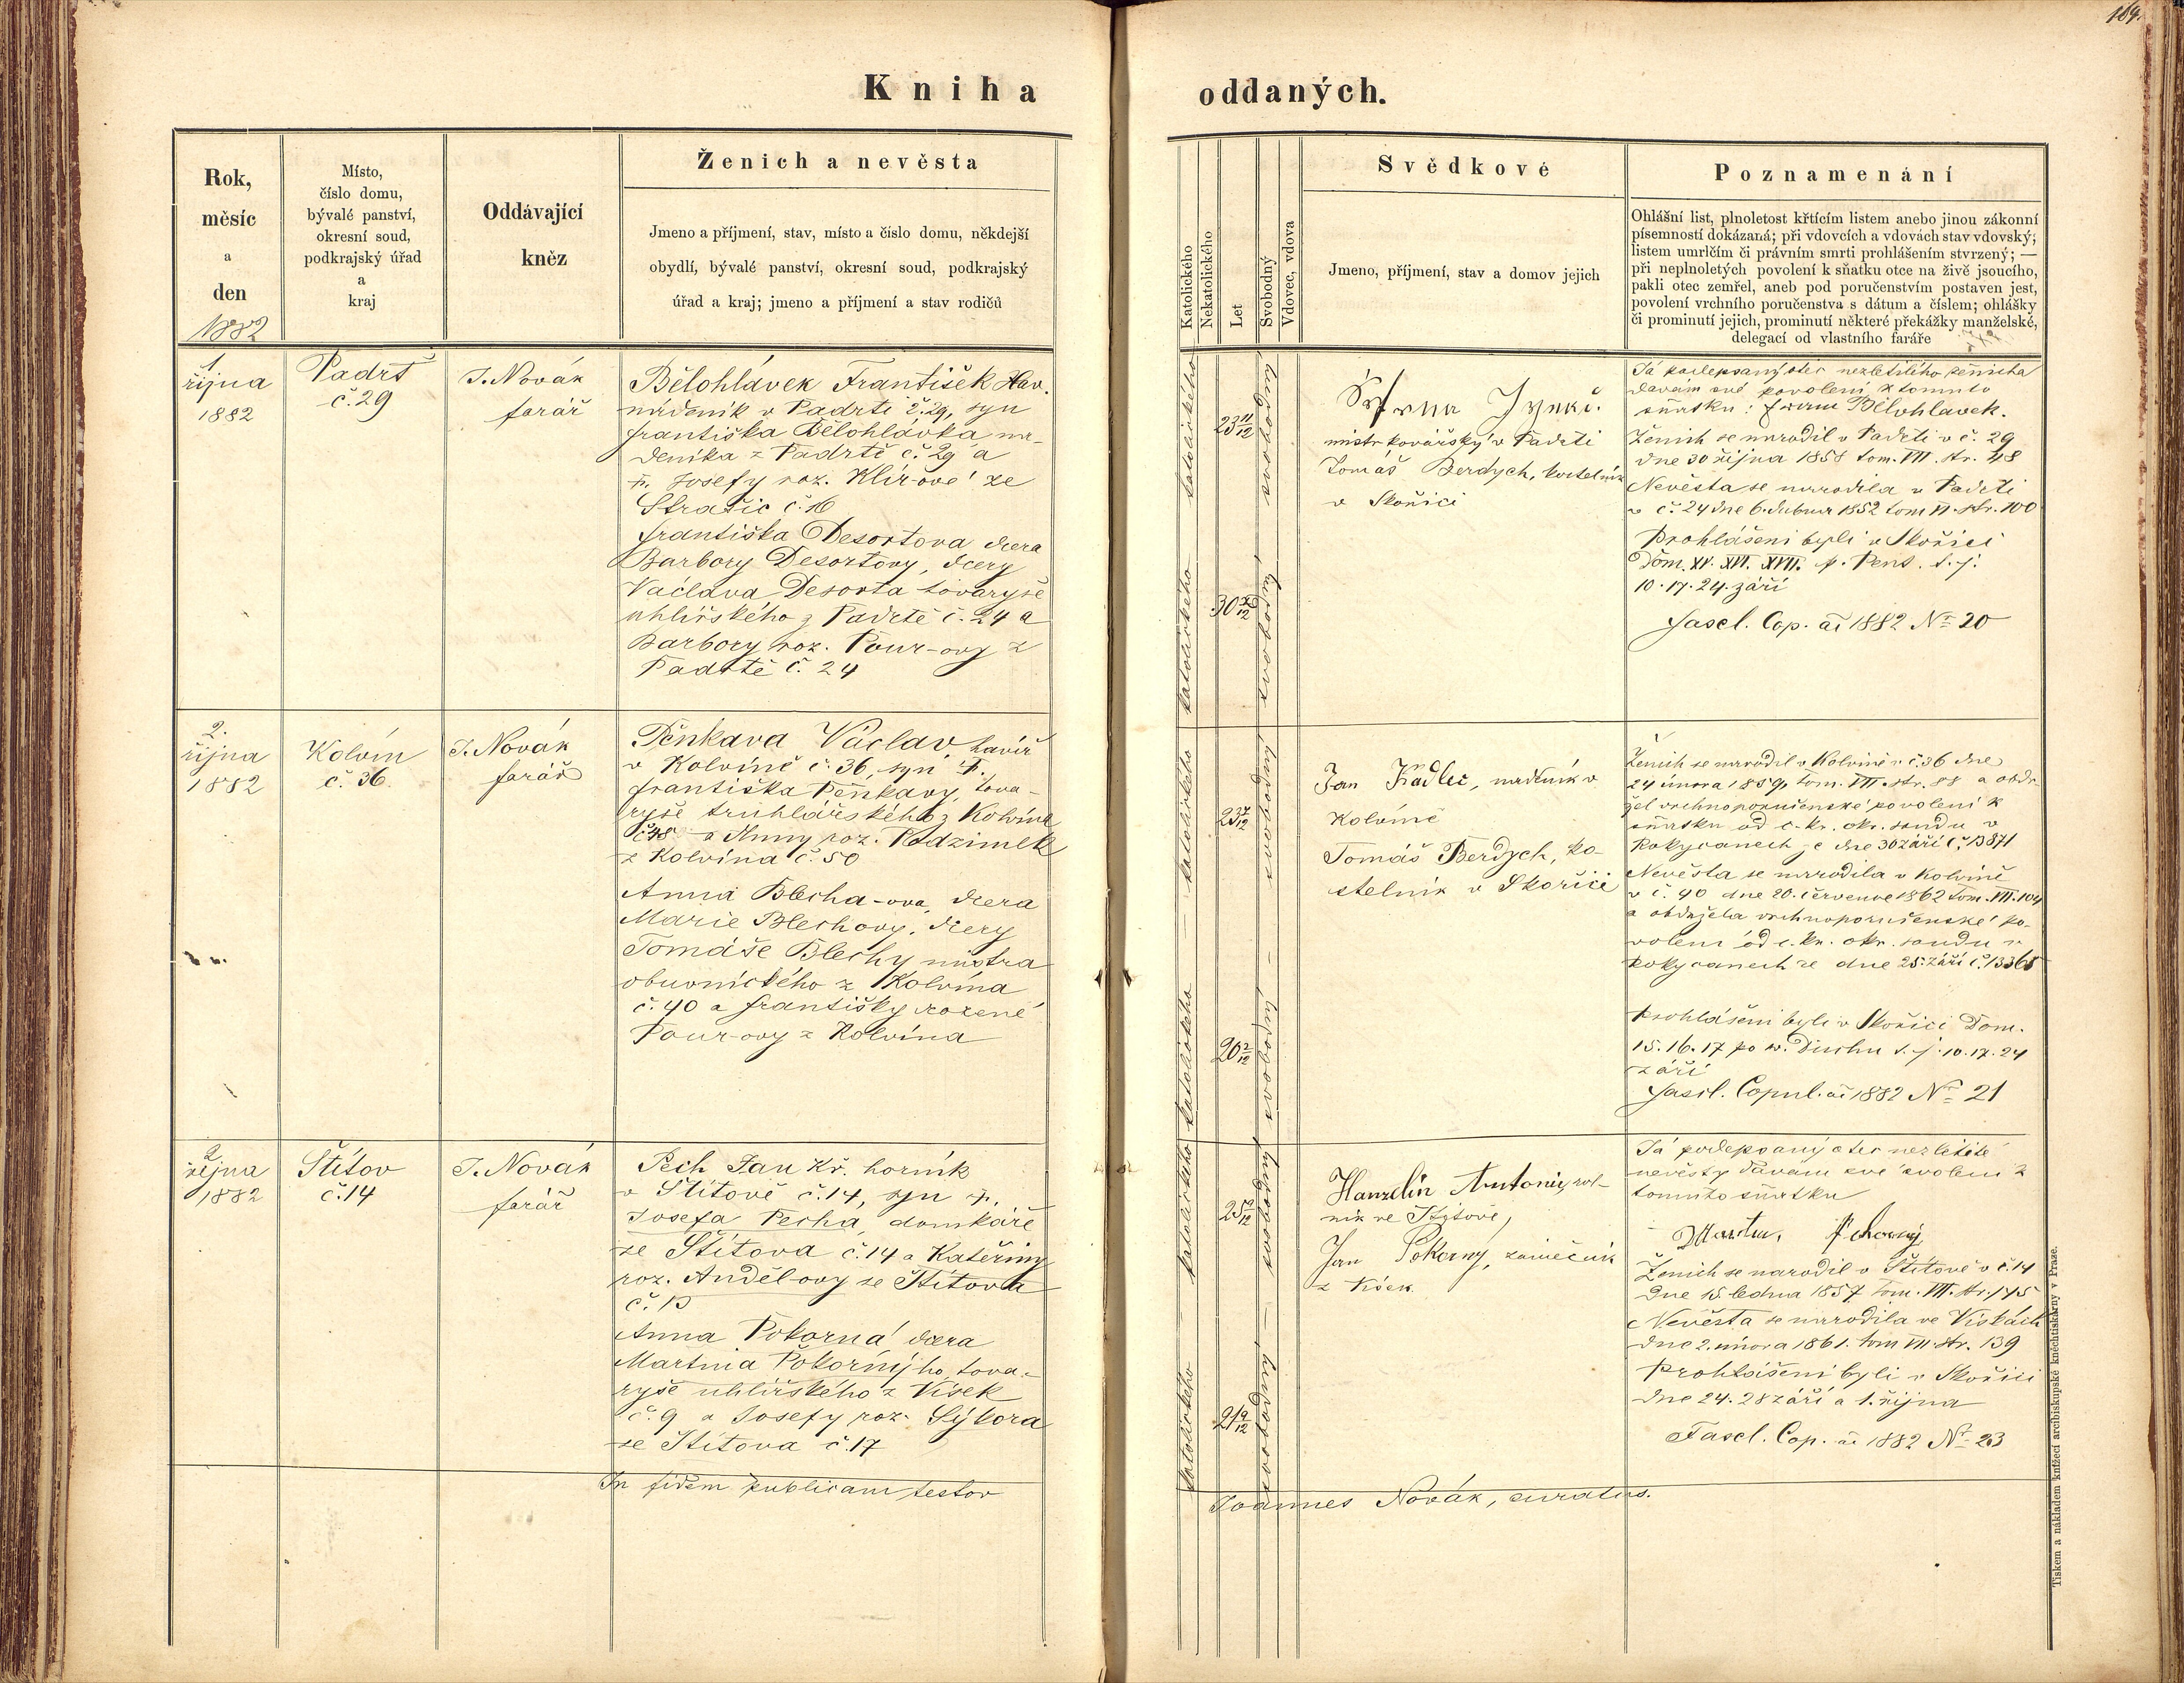 169.
Kniha oddaných.
Rok,
měsíc
a
den
1882
Místo,
číslo domu,
bývalé panství,
okresní soud,
podkrajský úřad
a
kraj
Oddávající
kněz
Ženich a nevěsta
Jmeno a příjmení, stav, místo a číslo domu, někdejší
obydlí, bývalé panství, okresní soud, podkrajský
úřad a kraj; jmeno a příjmení a stav rodičů
Katolického
Nekatolického
Let
Svobodný
Vdovec, vdova
Svědkové
Jmeno, příjmení, stav a domov jejich
Poznamenání
Ohlášní list, plnoletost křtícím listem anebo jinou zákonní
písemností dokázaná; při vdovcích a vdovách stav vdovský;
listem umrlčím či právním smrti prohlášením stvrzený; —
při neplnoletých povolení k sňatku otce na živě jsoucího,
pakli otec zemřel, aneb pod poručenstvím postaven jest,
povolení vrchního poručenstva s dátum a číslem; ohlášky
či prominutí jejich, prominutí některé překážky manželské,
delegací od vlastního faráře
1.
října
1882
Padrť
č. 29
J. Novák
farář
Bělohlávek František Hav.
nádeník v Padrti č. 29, syn
Františka Bělohlávka ná-
deníka z Padrtě č. 29 a
Josefy roz. Klír-ové ze
Strašic č. 16
Františka Desortova dcera
Barbory Desortovy, dcery
Václava Desorta tovaryše
uhlířského z Padrtě č. 24 a
Barbory roz. Pour-ovy z
Padrtě č. 24
katolického
23 11/12
svobodný
katolického
30
svobodný
mistr kovářský v Padrti
Tomáš Berdych, kostelník
v Skořici
Já podepsaný otec nezletilého ženicha
davám své povolení k tomuto
sňatku: Franc Bělohlavek.
Ženich se narodil v Padrti v č. 29
dne 30 října 1858 tom. VII. str. 48
Nevěsta se narodila v Padrti
v č. 24 dne 6. dubna 1852 tom VI. str. 100
Prohlášeni byli v Skořici
Dom. XV. XVI. XVII. p. Pent. t. j.
10. 17. 24. září
Fascl. Cop. ai 1882 No 20
2.
října
1882
Kolvín
č. 36.
J. Novák
farář
Pěnkava Václav, havíř
v Kolvíně č. 36, syn
Františka Pěnkavy, tova-
ryše truhlářského z Kolvína
č. 48 a Anny roz. Radzimek
z Kolvína č. 50
Anna Blecha-ova, dcera
Marie Blechovy, dcery
Tomáše Blechy mistra
obuvnického z Kolvína
č. 40 a Františky rozené
Pour-ovy z Kolvína
katolického
23
svobodný
katolického
20 2/12
svobodný
Jan Kadlec, nadeník v
Kolvíně
Tomáš Berdych, ko-
stelník v Skořici
Ženich se narodil v Kolvíně v č. 36 dne
24 února 1859, tom. VII. str. 88 a obdr-
žel vrchnoporučenské povolení k
sňatku od c. kr. okr. soudu v
Rokycanech ze dne 30 září č. 13871
Nevěsta se narodila v Kolvíně
v č. 40 dne 20. července 1862 tom. VII. 104
a obdržela vrchnoporučenské po-
volení od c. kr. okr. soudu v
Rokycanech ze dne 25. září č. 13365
Prohlášeni byli v Skořici Dom.
15. 16. 17 po sv. Duchu t. j. 10. 17. 24
září
Fascl. Copul. ai 1882 No 21
2.
října
1882
Štítov
č. 14
J. Novák
farář
Pech Jan Kř. horník
v Štítově č. 14, syn
Josefa Pecha, domkáře
ze Štítova č. 14 a Kateřiny
roz. Anděl-ovy ze Štítova
č. 13
Anna Pokorná dcera
Martina Pokorný ho tova-
ryše uhlířského z Vísek
č. 9 a Josefy roz. Sýkora
ze Štítova č. 17
katolického
25
svobodný
katolického
21
svobodná
Hanzelín Antonín, rol-
ník ve Štýtově,
Jan Pokorný, zámečník
z Vísek
Já podepsaný otec nezletilé
nevěsty davám své svolení k
tomuto sňatku
Ženich se narodil v Štítově v č. 14
dne 15. ledna 1857 tom. VII. str. 145
Nevěsta se narodila ve Vískách
dne 2. února 1861. tom VII. str. 139
Prohlášeni byli v Skořici
dne 24. 28 září a 1. října
Fascl. Cop. ai 1882 No 23
In fidem publicam testor
Joannes Novák, curatus.
Tiskem a nákladem knížecí arcibiskupské kněhtiskárny v Praze.